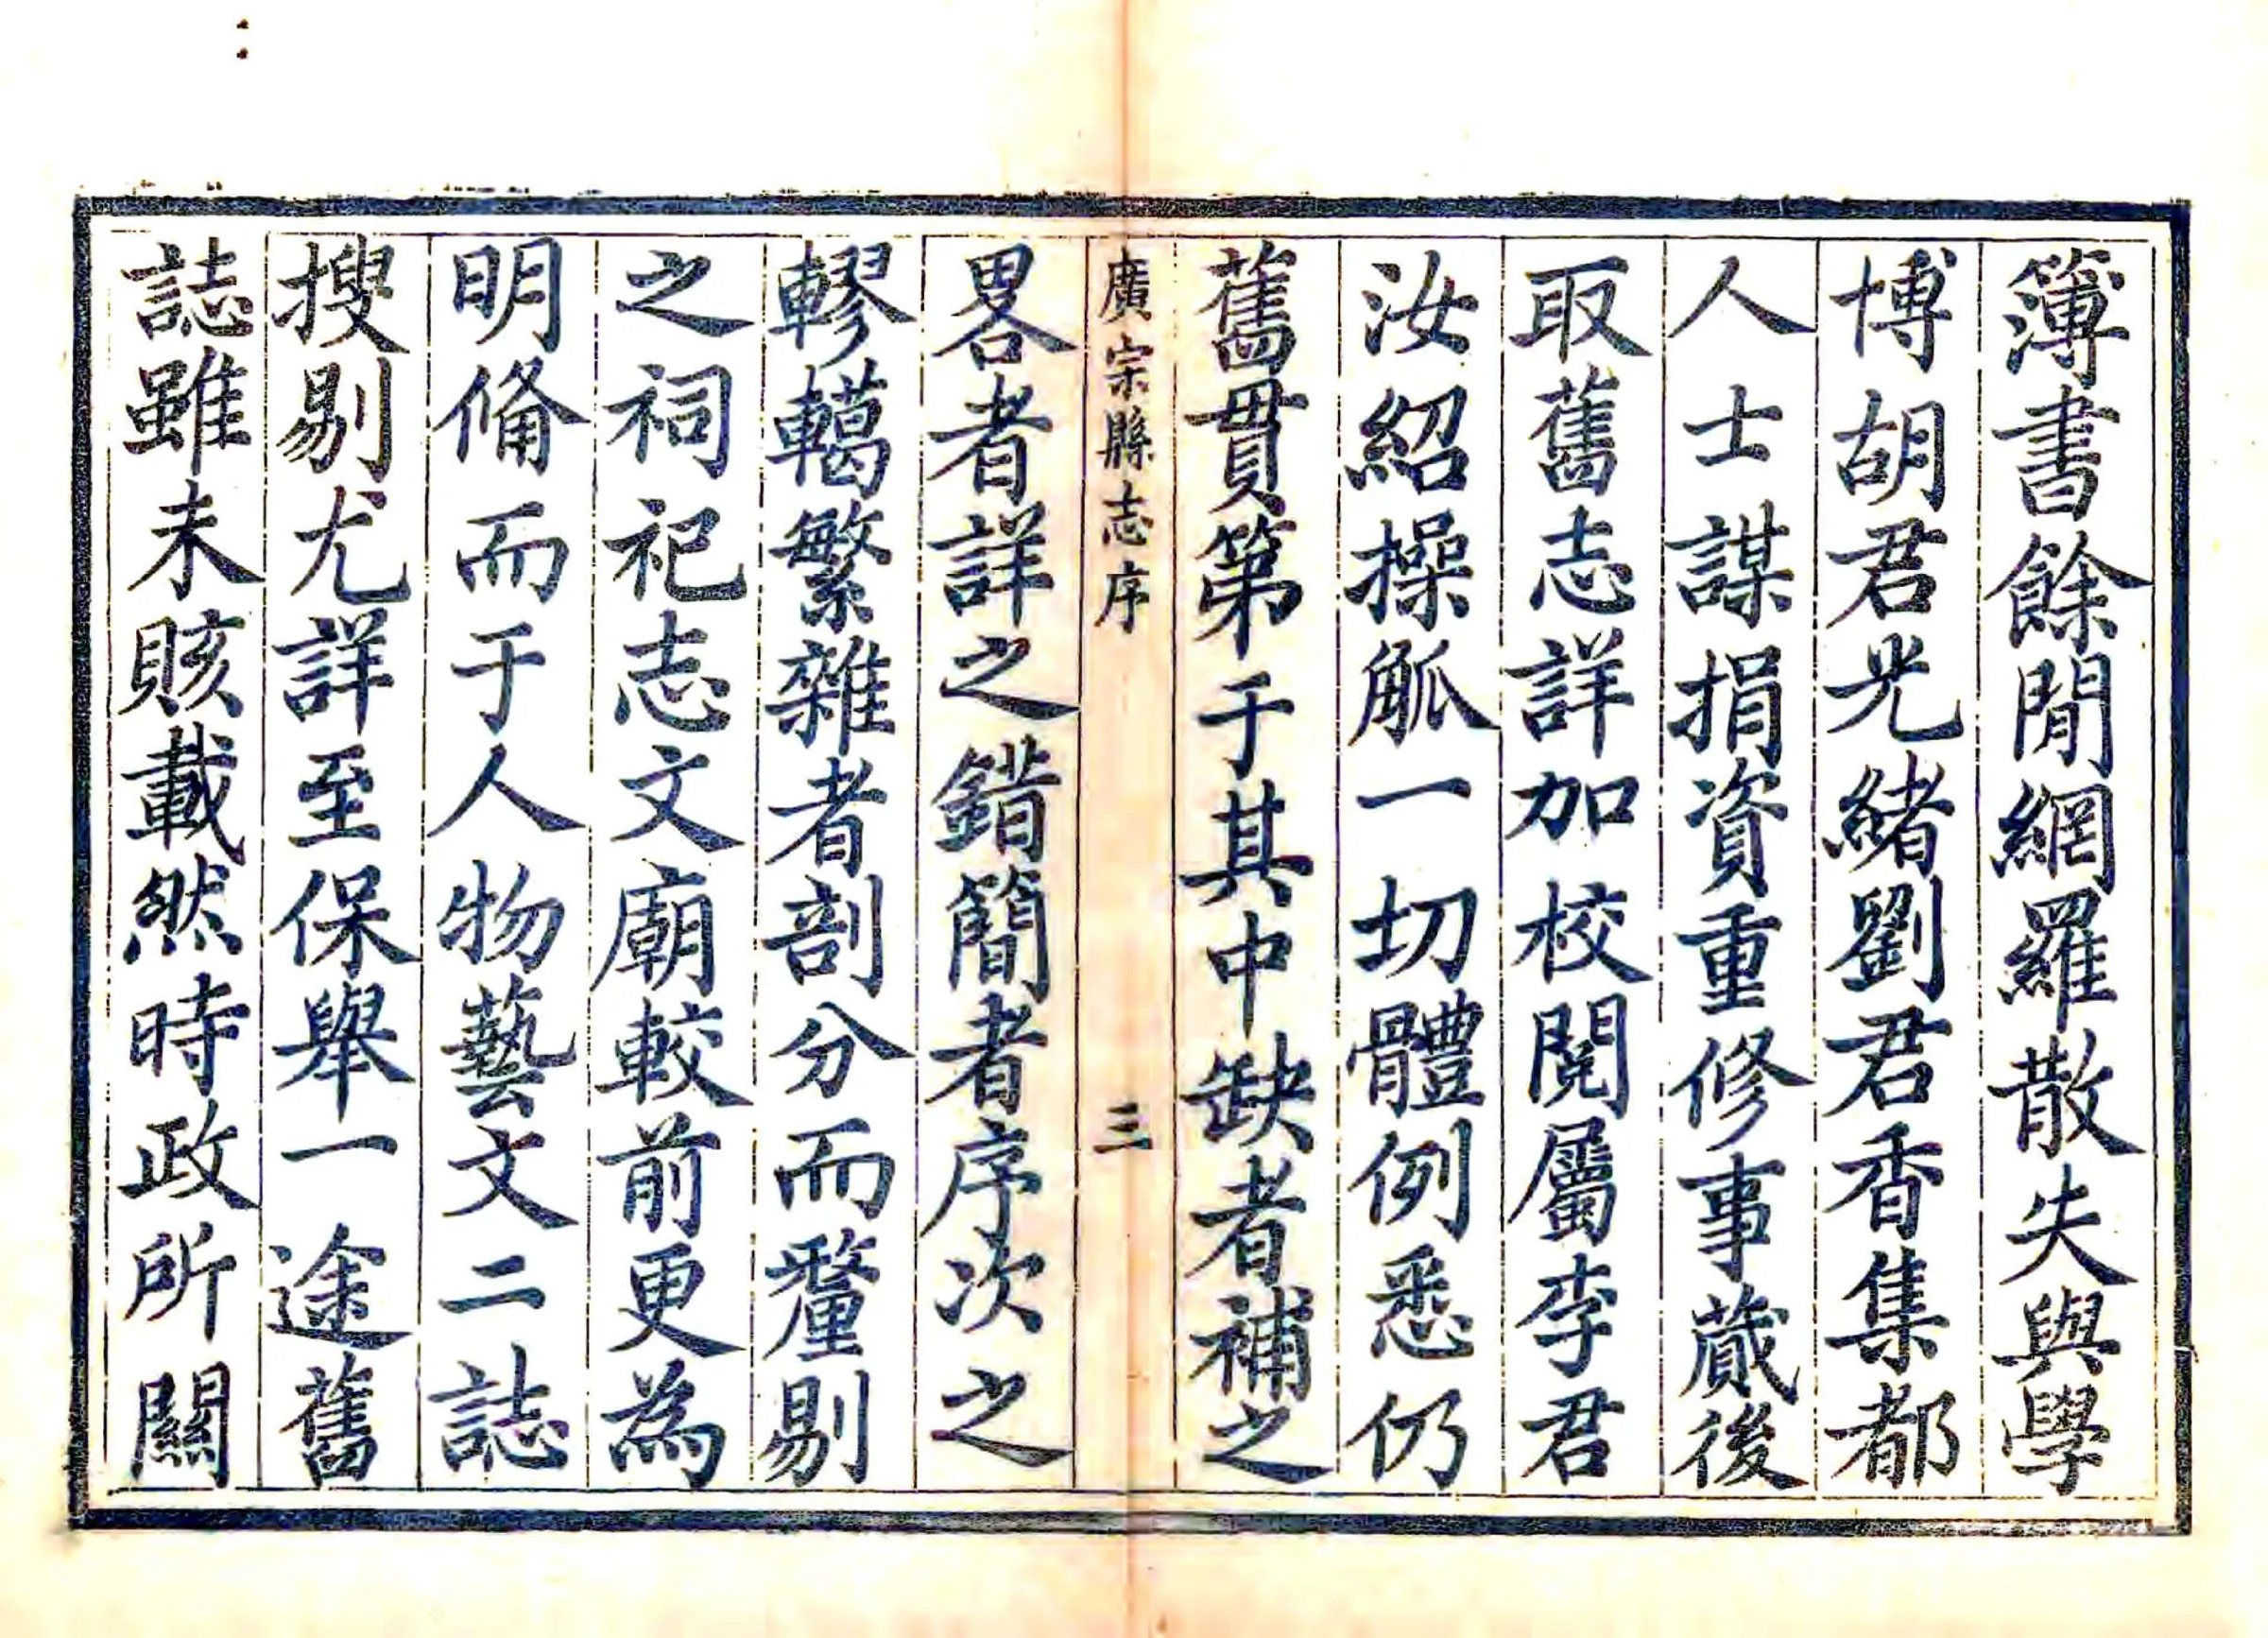 簿書餘閒網羅散失與學
博胡君光緒劉君香集都
人士謀捐資重修事蕆後
取舊志詳加校閱屬李君
汝紹操觚一切體例悉仍
舊貫第于其中缺者補之
廣宗縣志序
三
畧者詳之錯簡者序次之
轇轕繁雜者剖分而釐剔
之祠祀志文廟較前更為
明俻而于人物藝文二誌
搜剔尤詳至保舉一途舊
誌雖未賅載然時政所關